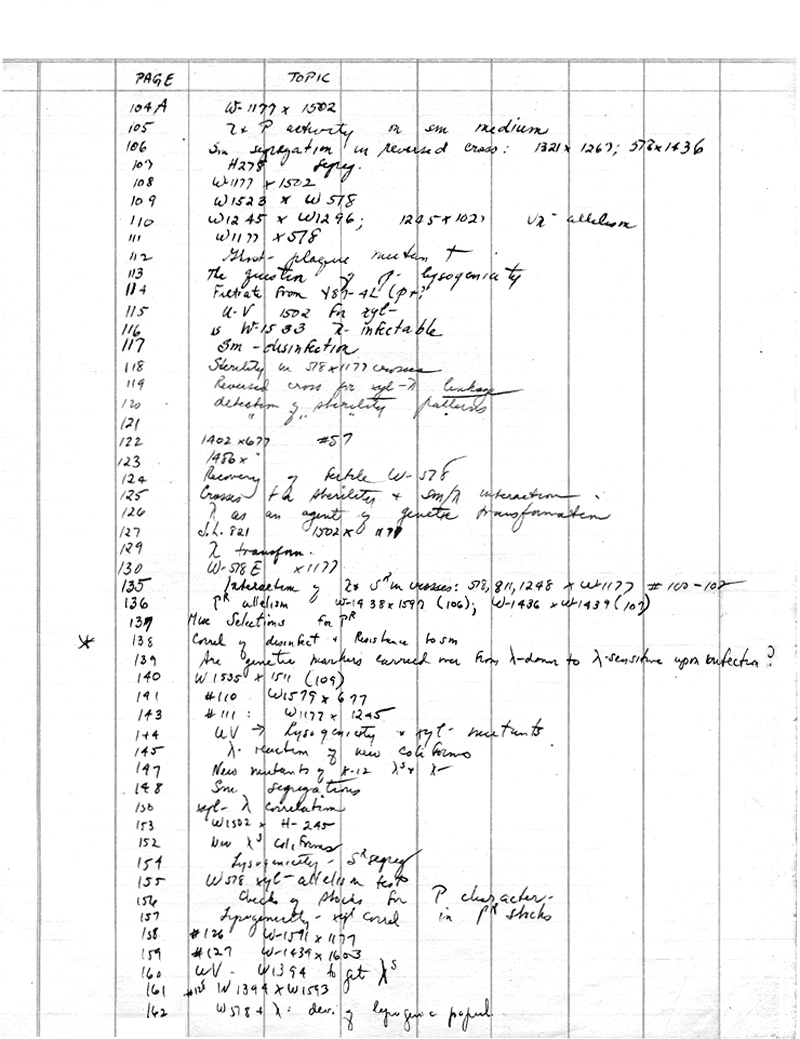 PAGE TOPIC
104A W-1177 x 1502
105 λ & P activity on sm medium
106 Sm segregation in reversed cross: 1321 x 1267; 578 x 1436
107 H278 segreg.
108 W-1177 x 1502
109 W1523 x W578
110 W1245 x W1296; 1245 x 1027 allelism
111 W1177 x 578
112 Ghost-plaque mutant
113 The question of lysogenicity
114 Filtrate from
115 U-V 1502 for xyl-
116 is W-1533 λ-infectable
117 Sm-disinfection
118 Sterility in 578 x 1177 crosses
119 Reversed cross for xyl-λ linkage
120 detection of sterility patterns
121 " " "
122 1402 x 677 #57
123 1486 x "
124 Recovery of fertile W-578
125 Crosses sterility + Sm/λ interaction
126 λ as an agent of genetic transformation
127 J.L. 821 1502 x 1177
129 λ transform.
130 W-578E x 1177
135 Interaction of λ & Sᴿ in crosses: 578, 811, 1248 x W-1177 # 100-102
136 Pᴿ allelism W-1438 x 1597 (106); W-1436 x W-1439 (107)
137 Selections for Pᴿ
* 138 Correl of disinfect + Resistance to sm
139 Are genetic markers carried over from λ-donor to λ-sensitive upon infection?
140 W1535 x 1511 (109)
141 #110 W1579 x 677
143 #111: W1177 x 1245
144 UV → Lysogenicity + xyl- mutants
145 λ-reaction of new coliforms
147 New mutants of K-12 λˢ + λ-
148 Sm segregations
150 xyl-λ correlation
153 W1502 x H-245
152 New λˢ coliforms
154 Lysogenicity - Sᴿ segreg
155 W578 xyl-allelism tests
156 Checks of stocks for P character-
157 Lysogenicity-xyl correl in Pᴿ stocks
158 #126 W-1591 x 1177
159 #127 W-1439 x 1603
160 UV- W1394 to get λˢ
161 #128 W1394 x W1593
162 W578 + λ: dev. of lysogenic popul.